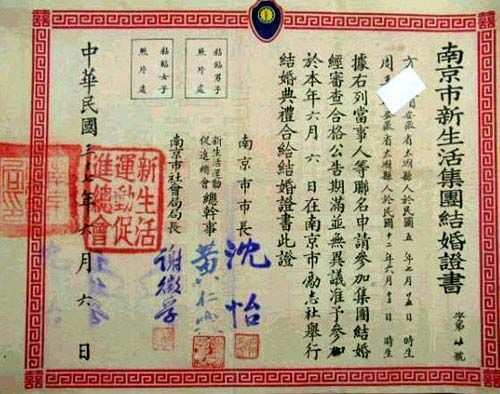 南京市新生活集團結婚證書
字第 號
安徽省太湖縣人於民國五年七月 時生
周 安徽省太湖縣人於民國十二年六月十三日 時生
據右列當事人等聯名申請參加集團結婚
經審查合格公告期滿並無異議准予參加
於本年六月六日在南京市勵志社舉行
結婚典禮合給結婚證書此證
南京市市長 沈怡
新生活運動促進總會總幹事 黃仁霖
南京市社會局局長 謝徵孚
粘貼男子照片處
粘貼女子照片處
中華民國三十七年六月六日
新生活運動促進總會